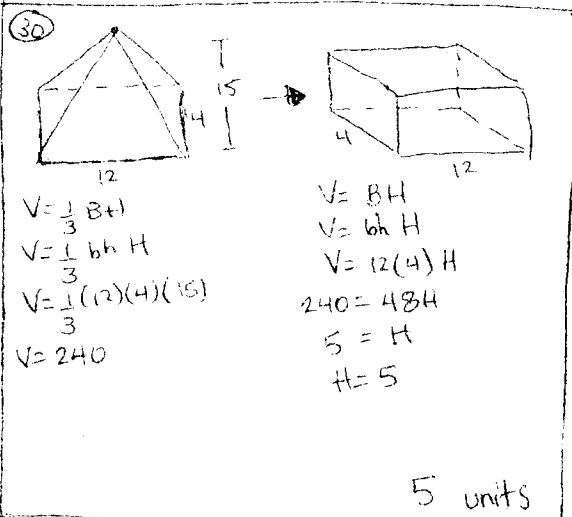 30
15
4
12
V = 1/3 BH
V = 1/3 bh H
V = 1/3 (12)(4)(15)
V = 240
4
12
V = BH
V = bh H
V = 12(4) H
240 = 48H
5 = H
H = 5
5 units